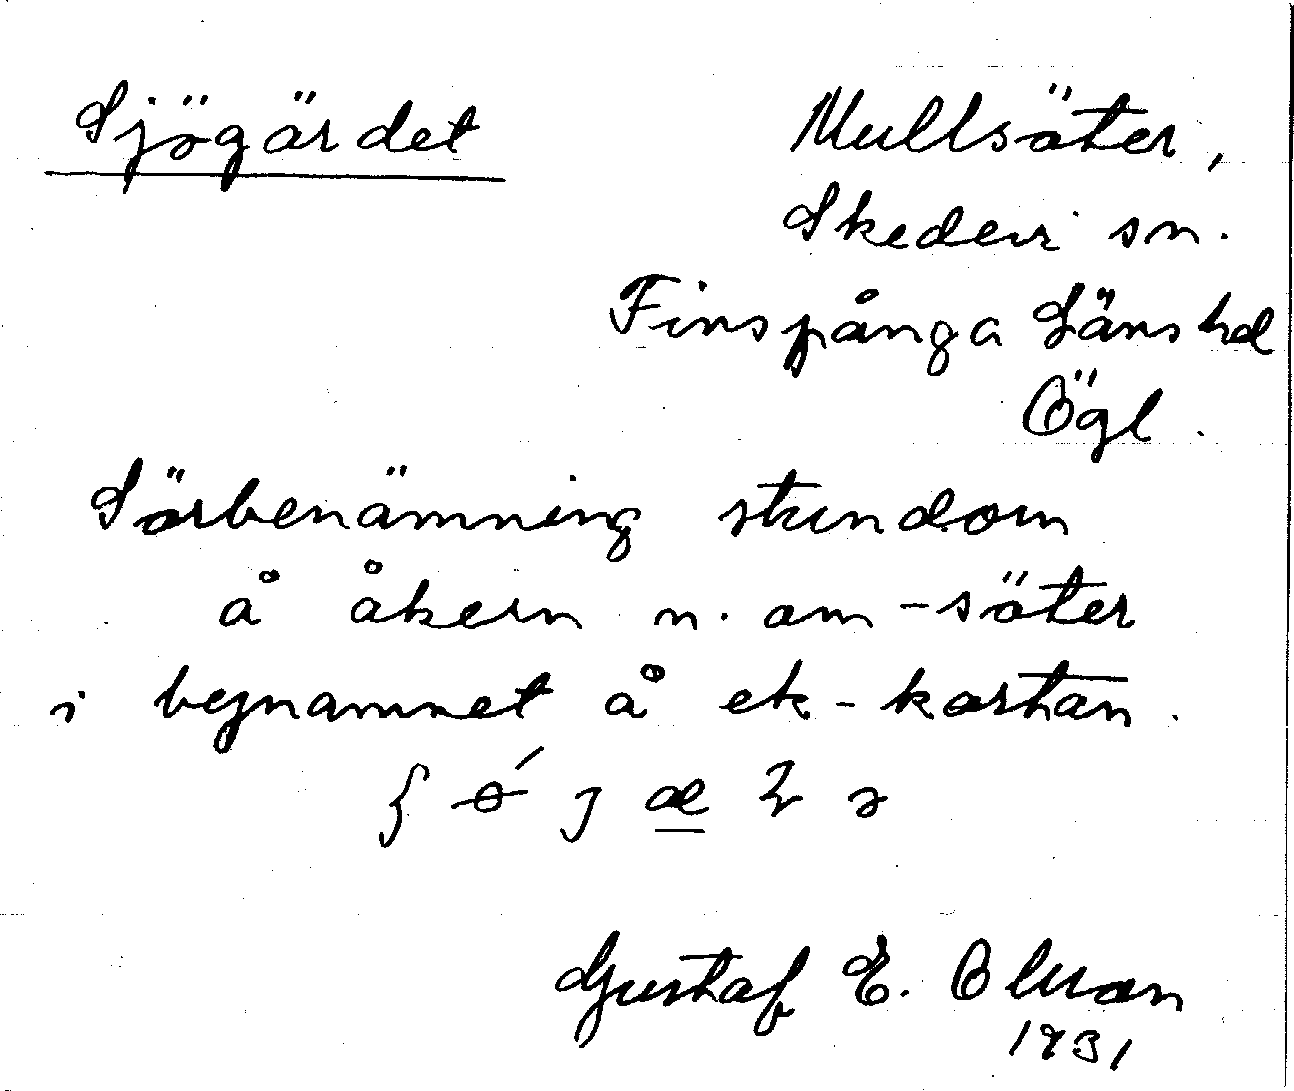 Sjögärdet
Mullsäter,
Skedevi sn.
Finspånga Läns hd
Ögl.
Särbenämning stundom
å åkern n. om -säter
i bynamnet å ek-kartan.
Gustaf E. Olsson
1931